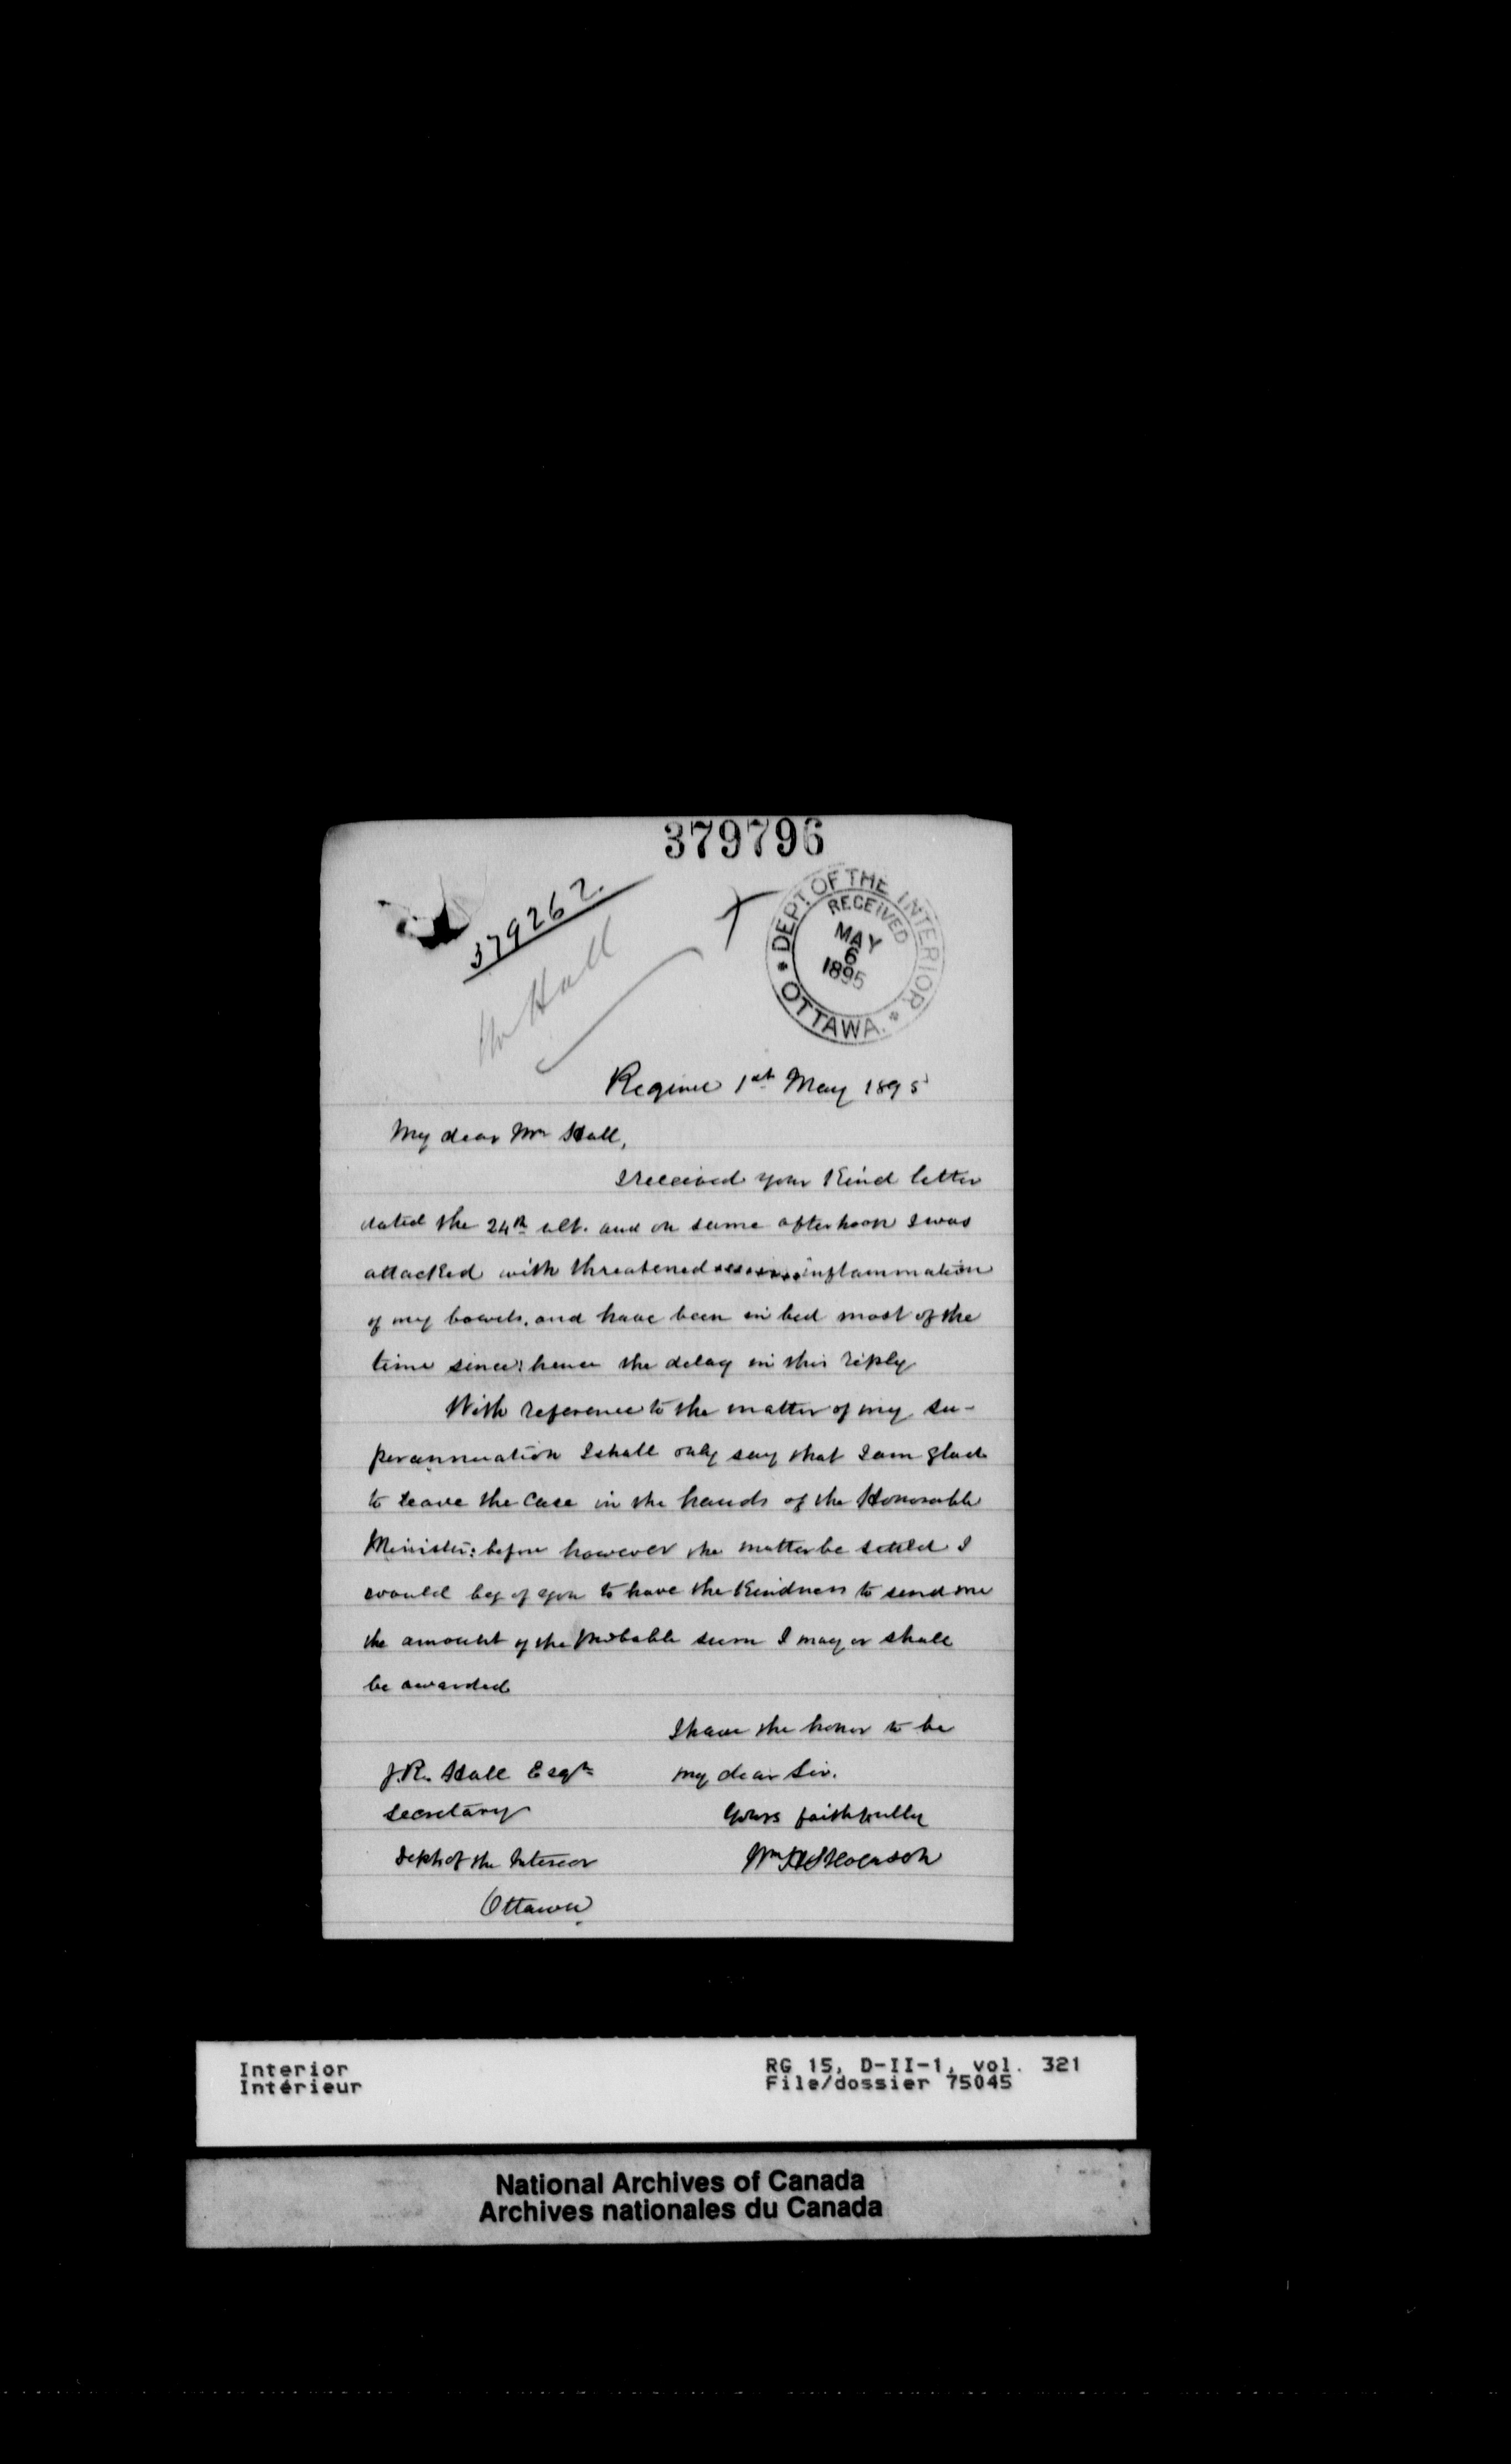 379796
379262.
Mr Hall
DEPT. OF THE INTERIOR
RECEIVED
MAY
6
1895
OTTAWA.
Regina 1st May 1895
My dear Mr Hall,
I received your kind letter
dated the 24th ult. and on same afternoon I was
attacked with threatened inflammation
of my bowels, and have been in bed most of the
time since: hence the delay in this reply
With reference to the matter of my su-
perannuation I shall only say that I am glad
to leave the case in the hands of the Honorable
Minister: before however the matter be settled I
would beg of you to have the kindness to send me
the amount of the probable sum I may or shall
be awarded
I have the honor to be
J.R. Hall Esqre my dear Sir.
Secretary Yours faithfully
Dept of the Interior Wm Stevenson
Ottawa
Interior RG 15, D-II-1, vol. 321
Intérieur File/dossier 75045
National Archives of Canada
Archives nationales du Canada